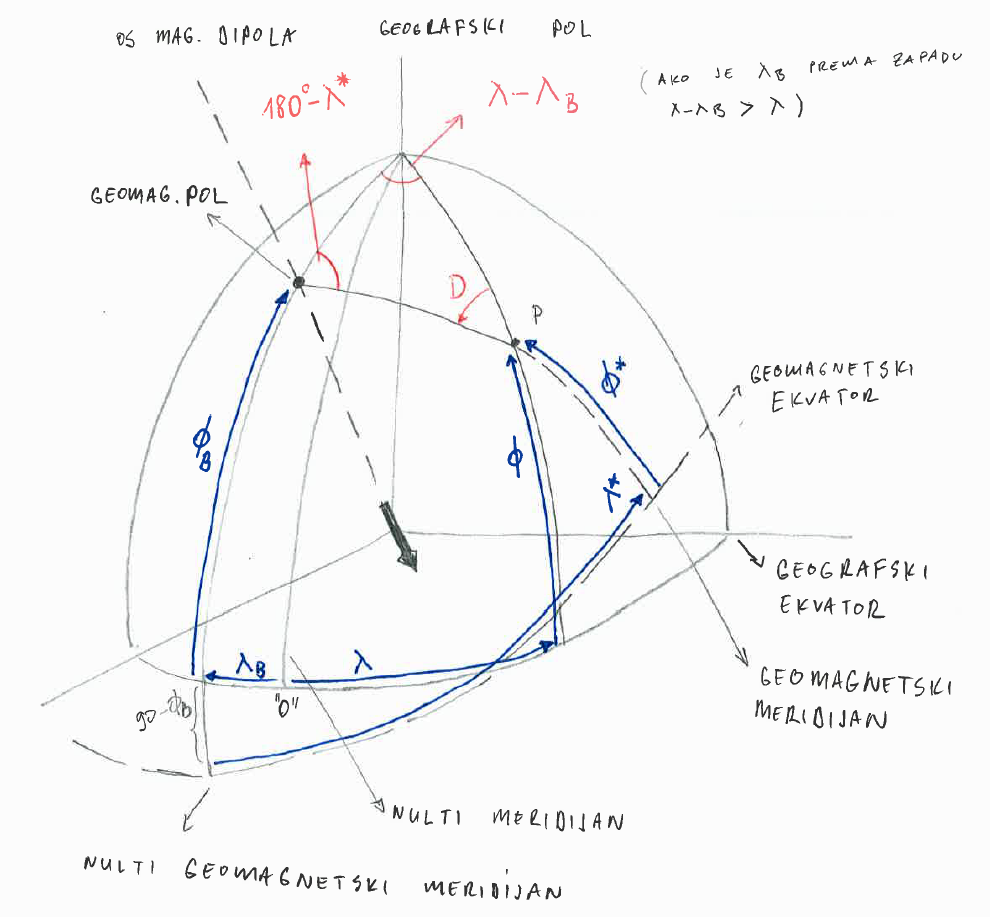 OS MAG. DIPOLA
GEOGRAFSKI POL
180°-λ*
λ-λB
(AKO JE λB PREMA ZAPADU
λ-λB > λ)
GEOMAG. POL
D
P
ϕ*
GEOMAGNETSKI
EKVATOR
ϕB
ϕ
λ*
GEOGRAFSKI
EKVATOR
λB
λ
"0"
90-ϕB
GEOMAGNETSKI
MERIDIJAN
NULTI MERIDIJAN
NULTI GEOMAGNETSKI MERIDIJAN